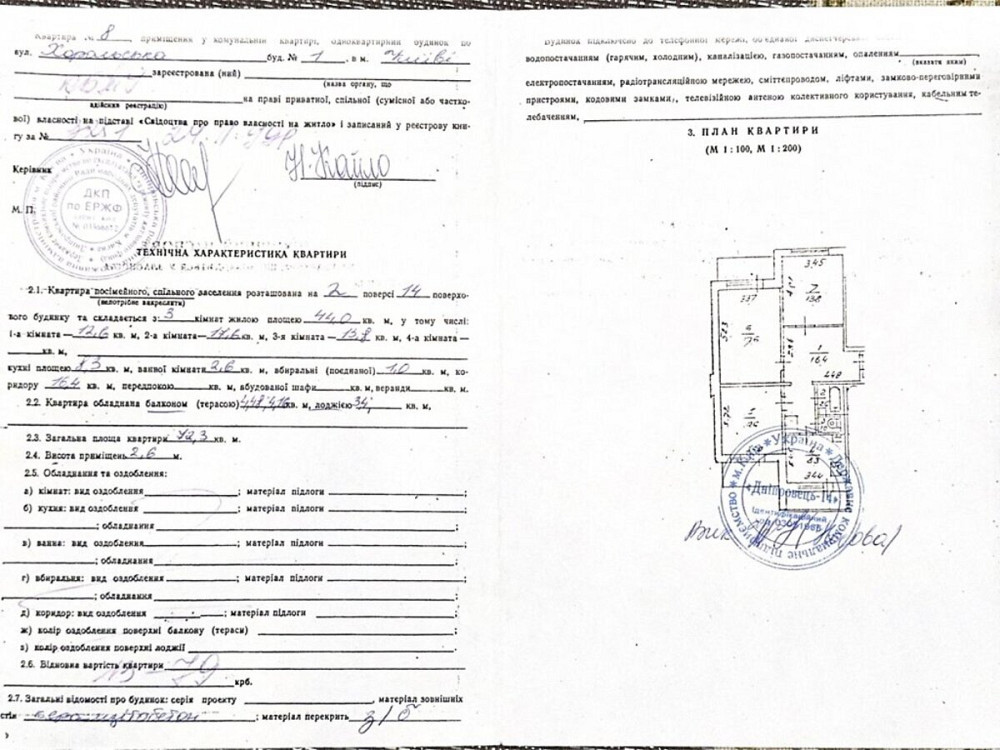 Квартира № 8 приміщення у комунальній квартирі, одноквартирний будинок по
вул. Хорольська буд. № 1, в м. Києві
зареєстрована (ний)
(назва органу, що
здійснив реєстрацію)
на праві приватної, спільної (сумісної або частко-
вої) власності на підставі «Свідоцтва про право власності на житло» і записаний у реєстрову кни-
гу за №
Керівник
Н. Кайло
(підпис)
М. П.
ДКП
по ЕРЖФ
ТЕХНІЧНА ХАРАКТЕРИСТИКА КВАРТИРИ
2.1. Квартира посімейного, спільного заселення розташована на 2 поверсі 14 поверхо-
(непотрібне закреслити)
вого будинку та складається з: 3 кімнат жилою площею 44,0 кв. м, у тому числі:
1-а кімната — 12,6 кв. м, 2-а кімната — 17,6 кв. м, 3-я кімната — 13,8 кв. м, 4-а кімната —
кв. м,
кухні площею 8,3 кв. м, ванної кімнати 2,6 кв. м, вбиральні (поєднаної) 1,0 кв. м, ко-
ридору 16,4 кв. м, передпокою кв. м, вбудованої шафи кв. м, веранди кв. м.
2.2. Квартира обладнана балконом (терасою) кв. м, лоджією кв. м,
2.3. Загальна площа квартири 72,3 кв. м.
2.4. Висота приміщень 2,6 м.
2.5. Обладнання та оздоблення:
а) кімнат: вид оздоблення ; матеріал підлоги ;
б) кухня: вид оздоблення ; матеріал підлоги
; обладнання ;
в) ванна: вид оздоблення ; матеріал підлоги
; обладнання ;
г) вбиральня: вид оздоблення ; матеріал підлоги
; обладнання ;
д) коридор: вид оздоблення ; матеріал підлоги ;
ж) колір оздоблення поверхні балкону (тераси) ;
з) колір оздоблення поверхні лоджії ;
2.6. Відновна вартість квартири
крб.
2.7. Загальні відомості про будинок: серія проекту , матеріал зовнішніх
стін ; матеріал перекрить з/б
Будинок підключено до телефонної мережі, об'єднаної диспетчерської
водопостачанням (гарячим, холодним), каналізацією, газопостачанням, опаленням
(вказати яким)
електропостачанням, радіотрансляційною мережею, сміттєпроводом, ліфтами, замково-переговорними
пристроями, кодовими замками, телевізійною антеною колективного користування, кабельним те-
лебаченням,
3. ПЛАН КВАРТИРИ
(М 1 : 100, М 1 : 200)
3,45
7
13,8
337
1
16,4
448
344
Україна * Державне комунальне підприємство * м. Київ
«Дніпровець-14»
Ідентифікаційний